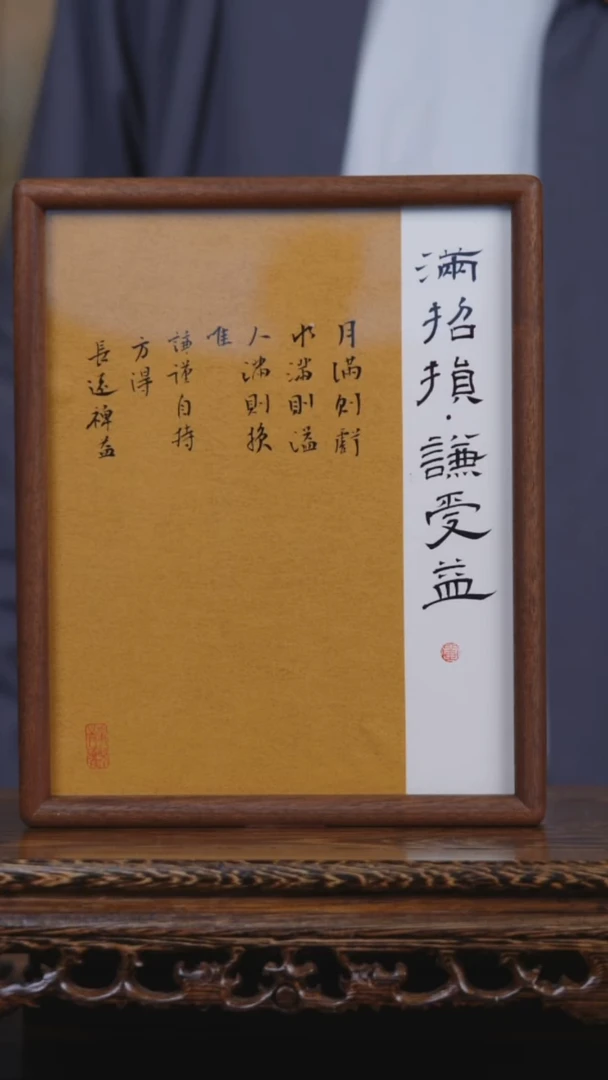 滿招損·謙受益
月滿則虧
水滿則溢
人滿則損
唯
謙謹自持
方得
長遠裨益